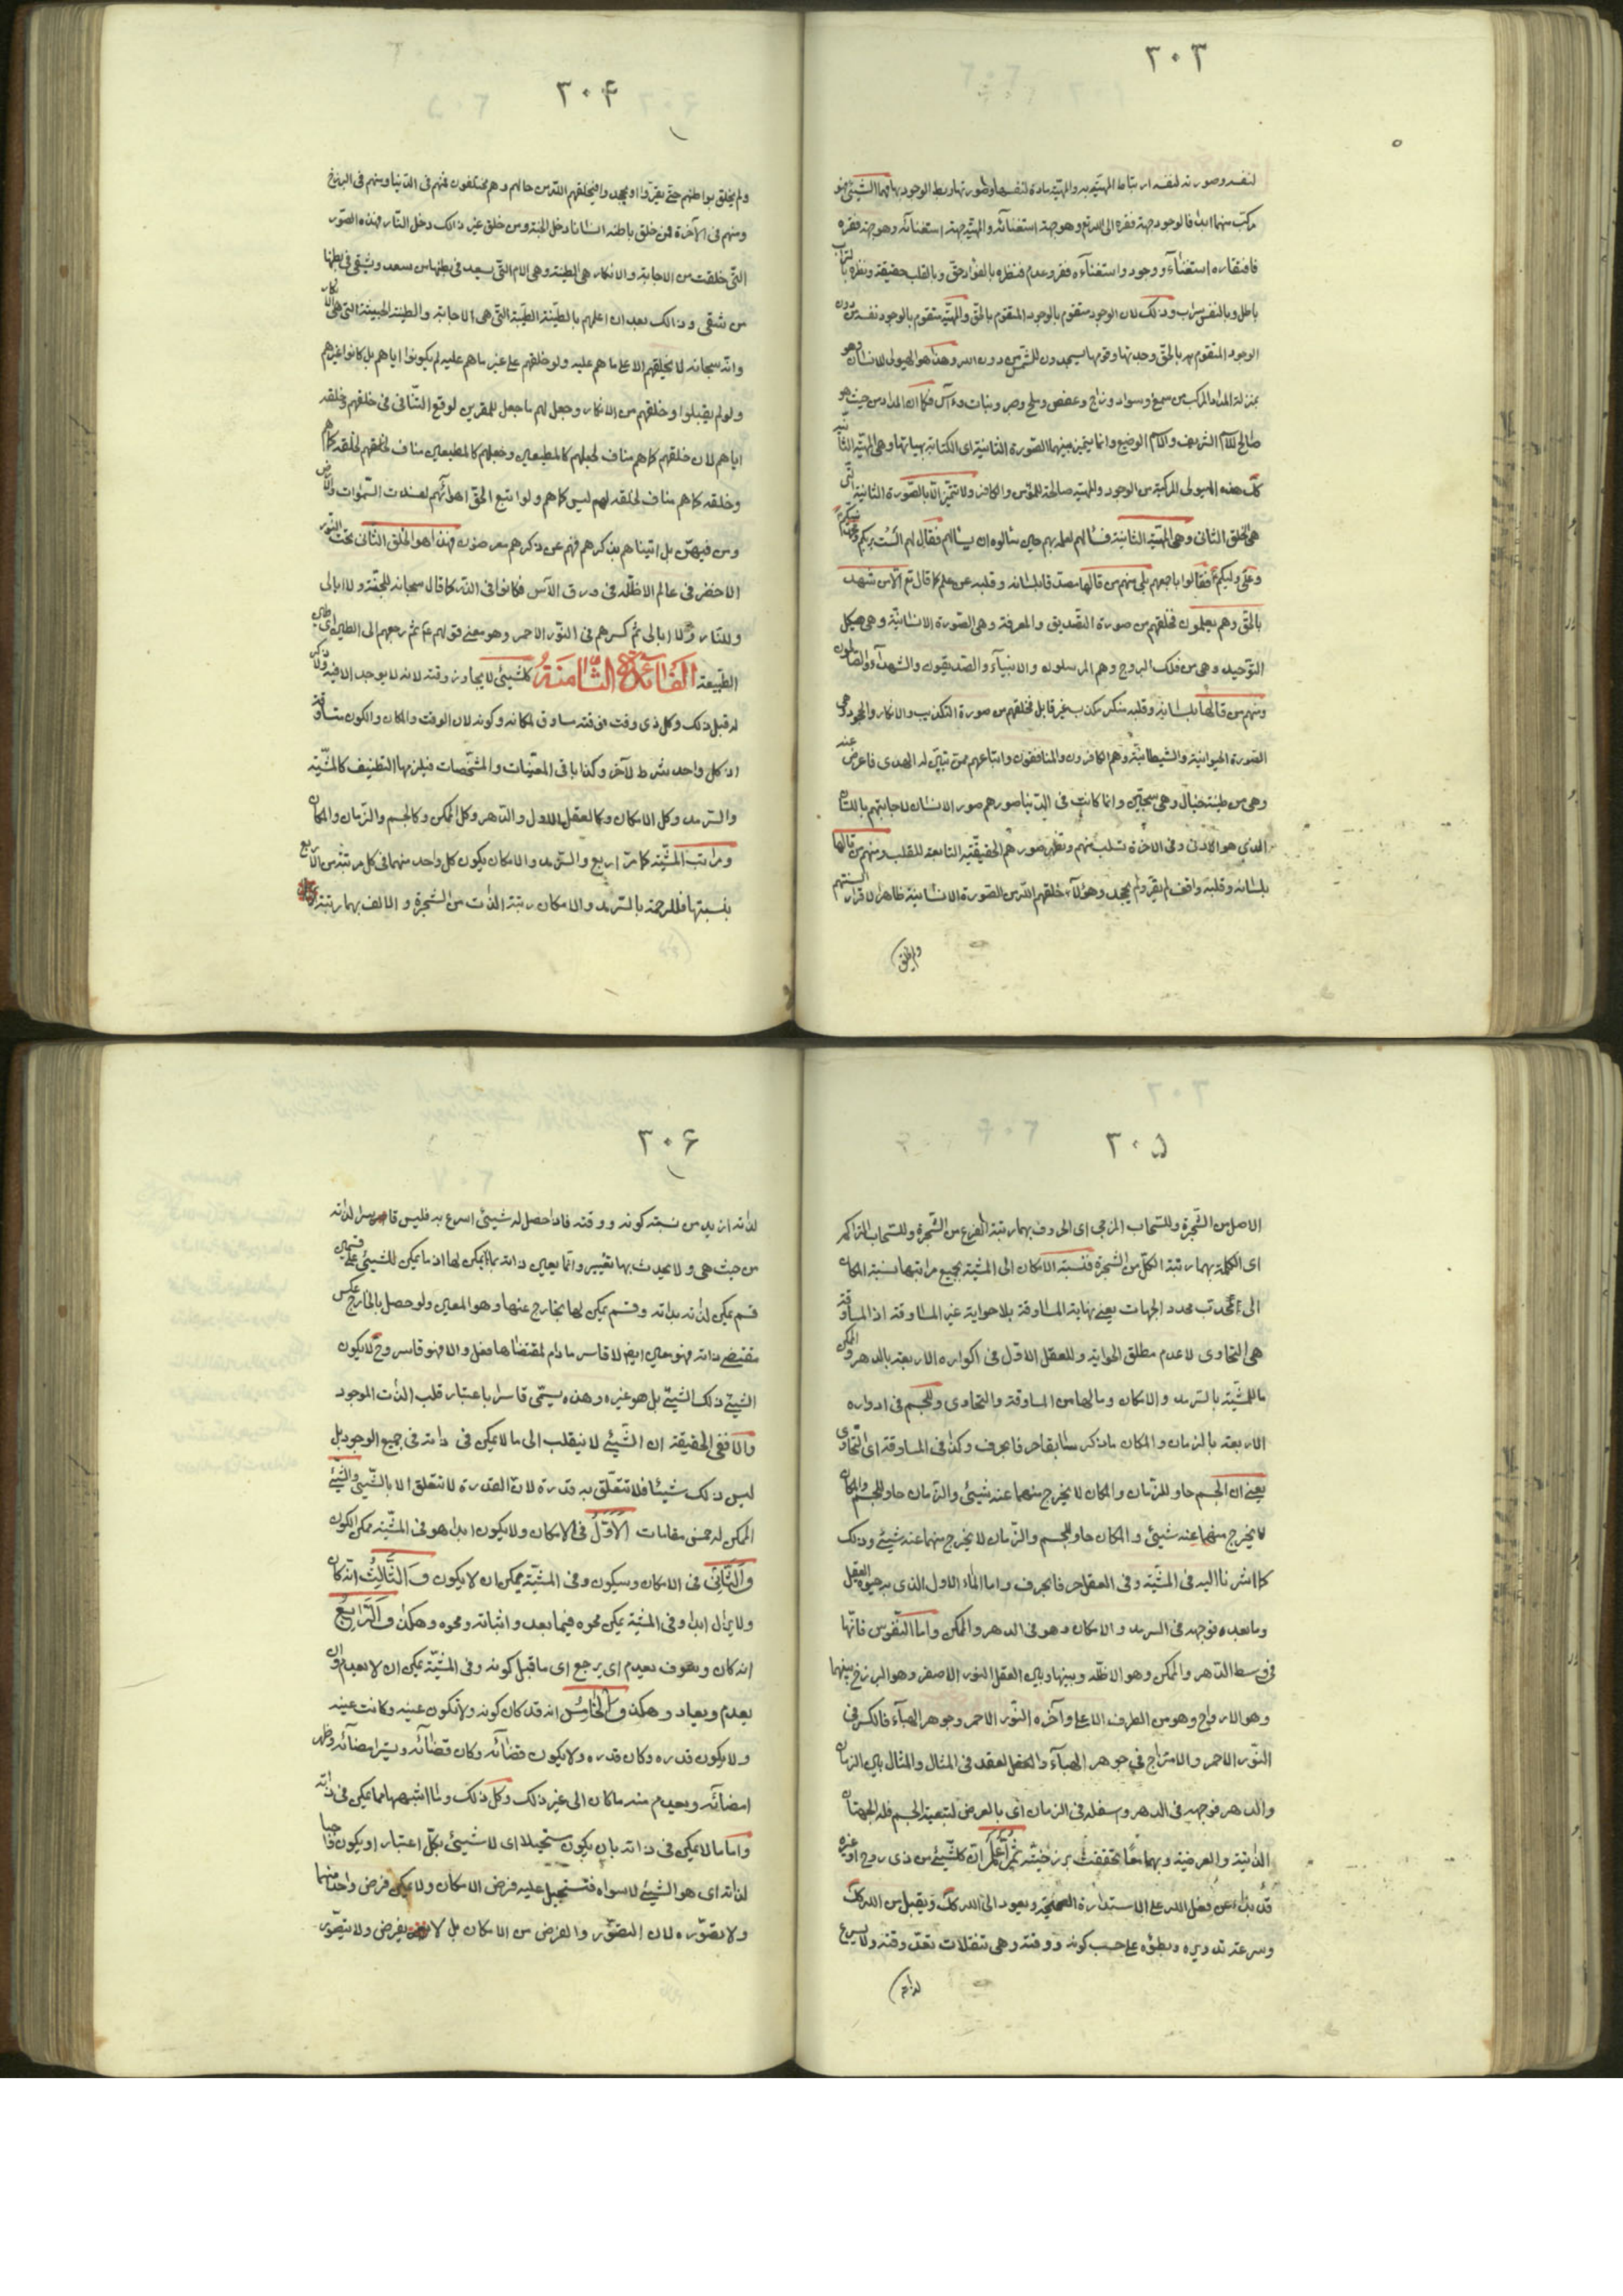 ٣٠٣
لنفسه وصورته لنفسه ارتباط المهيّة به والمهيّة مادة لنفسها وظهورتها وربط الوجود بها فهما الشيئ فهو
مركب منهما ابدا فالوجود جهة فقره الى الله تع وهو جهة استغنائه والمهيّة جهة استغنائه وهو جهة فقره
فافتقاره استغناء ووجود واستغناءه فقر وعدم فنظره بالفؤاد حق وبالقلب حقيقة ونظره
باطل وبالنفس سراب وذلك لان الوجود متقوم بالوجود المتقوم بالحق والمهيّة متقوم بالوجود نفسه من دون
الوجود المتقوم به بالحق وجدتها وقومها يسجدون للشمس من دون الله وهذا هو الهيولى للانسان وهو
بمنزلة المداد المركب من صمغ وسواد وزاج وعفص وملح وصبر ونبات وآس فكما ان المداد من حيث هو
صالح للاسم الشريف والاسم الوضيع وانما يتميز بينهما الصّورة الثانية اى الكتابة بهيأتها وهى المهيّة الثانية
كك هذه الهيولى المركبة من الوجود والمهيّة صالحة للمؤمن والكافر ولا تتميّز الّا بالصّورة الثانية الّتى
هى الخلق الثانى وهى المهيّة الثانية فسألهم لعلمه بهم حين سألوه ان يسألهم فقال لهم ألست بربكم ومحمد نبيكم
وعلى وليكم فقالوا باجمعهم بلى منهم من قالها مصدقا بلسانه وقلبه عن علم كما قال تع الّا من شهد
بالحق وهم يعلمون فخلقهم من صورة التصديق والمعرفة وهى الصّورة الانسانيّة وهى هيكل
التوحيد وهى من فلك البروج وهم المرسلون والانبياء والصديقون والشهداء والصالحون
ومنهم من قالها بلسانه وقلبه منكر مكذب غير قابل فخلقهم من صورة التكذيب والانكار والجحود وهى
الصّورة الحيوانية والشيطانيّة وهم الكافرون والمنافقون واتباعهم ممن تبيّن له الهدى فاعرض عنه
وهى من طينة خبال وهى سجّين وانما كانت فى الدنيا صورهم صور الانسان لاجابتهم باللسان
الذي هو الادنى وفى الاخرة تسلب منهم وتظهر صورهم الحقيقيّة التابعة للقلب ومنهم من قالها
بلسانه وقلبه واقف لم يقر ولم يجحد وهؤلاء خلقهم الله من الصّورة الانسانية ظاهرا لاقرار السنتهم
ولم يخلق
٣٠۴
ولم يخلق بواطنهم حتّى يقرّوا او يجحدوا فيخلقهم الله من حالهم وهم مختلفون فمنهم فى الدّنيا ومنهم فى البرزخ
ومنهم فى الآخرة فمن خلق باطنه انسانا دخل الجنّة ومن خلق غير ذالك دخل النّار فهذه الصّور
التّى خلقت من الاجابة والانكار هى الطينة وهى الام التّى يسعد فى بطنها من سعد ويشقى فى بطنها
من شقى وذالك بعد ان اعلمهم بالطينة الطيّبة التّى هى الاجابة والطينة الخبيثة التى هى الانكار
وانّه سبحانه لا يخلقهم الا على ما هم عليه ولو خلقهم على غير ما هم عليه لم يكونوا اياهم بل كانوا غيرهم
ولو لم يقبلوا وخلقهم من الانكار وجعل لهم ما جعل للمقرين لوقع التّنافى فى خلقهم فخلقه
اياهم لان خلقهم كما هم مناف لجعلهم كالمطيعين وجعلهم كالمطيعين مناف لخلقهم فخلقه كما هم
وخلقه كما هم مناف لخلقه لهم ليس كما هم ولو اتبع الحقّ اهوائهم لفسدت السّموات والارض
ومن فيهنّ بل اتيناهم بذكرهم فهم عن ذكرهم معرضون فهذا هو الخلق الثانى تحت النّور
الاخضر فى عالم الاظلّة فى ورق الآس فكانوا فى الذّر كما قال سبحانه للجنّة ولا ابالى
وللنار ولا ابالى ثم كسرهم فى النّور الاحمر وهو معنى قولهم عم ثم رجعهم الى الطين اى طين
الطبيعة الفَائدَةُ الثّامِنَةُ كلشيئ لا يجاوز وقته لانه لا يوجد الا فيه ولا ذكر
له قبل ذلك وكل ذى وقت فوقته مساوق لمكانه وكونه لان الوقت والمكان والكون متساوقة
اذ كل واحد شرط للآخر وكذا باقى المعيّنات والمشخّصات فيلزمها التظنيف كالمشيّة
والسّرمد وكل الامكان وكالعقل الاول والدّهر وكل الممكن وكالجسم والزّمان والمكان
ومراتب المشيّة كما مرّ اربع والسّرمد والامكان يكون كل واحد منهما فى كل مرتبة من الاربع
بنسبتها فللرحمة بالسّرمد والامكان رتبة الذّات من الشجرة والالف بهما رتبة
٣٠۵
الاصل من الشّجرة وللسّحاب المزجى اى الحروف بهما رتبة الفرع من الشّجرة وللسّحاب المتراكم
اى الكلمة بهما رتبة الكلّ من الشجرة فنسبة الامكان الى المشيّة بجميع مراتبها نسبة المكان
الى محدّب محدد الجهات يعنى نهاية المساوقة بلا حواية غير المساوقة اذ المساوقة
هى التحاوى لا عدم مطلق الحواية وللعقل الاوّل فى اكواره الاربعة بالدهر والممكن
ما للمشيّة بالسّرمد والامكان وما لها من المساوقة والتحاوى وللجسم فى ادواره
الاربعة بالزمان والمكان ما ذكر سابقا حرفا بحرف وكذا فى المساوقة اى التّحاوى
يعنى ان الجسم حاو للزّمان والمكان لا يخرج منهما عنه شيئ والزّمان حاو للجسم والمكان
لا يخرج منهما عنه شيئ والمكان حاو للجسم والزّمان لا يخرج منهما عنه شيئ وذلك
كما اشرنا اليه فى المشيّة وفى العقل حرفا بحرف واما الماء الاول الذى به حيوة العقل
وما بعده فوجهه فى السرمد والامكان وهو فى الدهر والممكن واما النّفوس فانّها
فى وسط الدّهر والممكن وهو الاظلّة وبينها وبين العقل النور الاصفر وهو البرزخ بينهما
وهو الارواح وهو من الطرف الاعلى وآخره النّور الاحمر وجوهر الهباء فالكسر فى
النّور الاحمر والامتزاج فى جوهر الهباء والحقل لعقد فى المثال والمثال بين الزمان
والدهر فوجهه فى الدهر وسفله فى الزمان اى بالعرض لتبعية الجسم فله الجهتان
الذاتية والعرضية وبهما معًا تحققت برزخيّته ثُمّ اعْلَمْ انّ كلشيئ من ذى روح او غيره
قد بدأ عن فعل الله على الاستدارة الصحيحة ويعود الى الله كك ويقبل من الله كك
وسرعة تدويره وبطؤه على حسب كونه ووقته وهى تنقلات تعدّ وقته ولا يسرع
لذاته
٣٠۶
لذاته ازيد من نسبة كونه ووقته فاذا حصل له شيئ اسرع به فليس قاسرا لذاته
من حيث هى ولا يحدث بها تغيير وانّما يعين ذاته بما يمكن لها اذ ما يمكن للشيئ على قسمين
قسم يمكن لذاته بذاته وقسم يمكن لها بخارج عنها وهو المعين ولو حصل بالخارج عكس
مقتضى ذاته فهو معين ايض لا قاسر ما دام لمقتضاها فعل والا فهو قاسر وح لا يكون
الشيئ ذلك الشيئ بل هو غيره وهذه يسمّى قاسرا باعتبار قلب الذات الموجود
والا ففى الحقيقة ان الشّيئ لا ينقلب الى ما لا يمكن فى ذاته فى جميع الوجود بل
ليس ذلك شيئا فلا تتعلّق به قدرة لانّ القدرة لا تتعلق الا بالشّيئ والشّيئ
الممكن له خمس مقامات الاَوّلُ فى الامكان ولا يكون ابدا هو فى المشيّة ممكن الكون
وَالثّانى فى الامكان وسيكون وفى المشيّة يمكن ان لا يكون وَالثّالِثُ انّه كان
ولا يزال ابدا وفى المشيّة يمكن محوه فيما بعد واثباته ومحوه وهكذا وَالرّابِعُ
انه كان وسوف يعدم اى يرجع اى ما قبل كونه وفى المشيّة يمكن ان لا يعدم وان
يعدم ويعاد وهكذا وَالخَامِسُ انه قد كان كونه ولا تكون عينه وكانت عينه
ولا يكون قدره وكان قدره ولا يكون قضائه وكان قضائه ويستر امضائه وظهر
امضائه ويعدم منه ما كان الى غير ذلك وكل ذلك وما اشبهها مما يمكن فى ذاته
واما ما لا يمكن فى ذاته بان يكون مستحيلا اى لا شيئ بكلّ اعتبار او يكون واجبا
لذاته اى هو الشيئ لا سواه فتستحيل عليه فرض الامكان ولا يمكن فرض واحد منهما
ولا تصوّره لان التصوّر والفرض من الامكان بل لا يفرض ولا يتصوّر